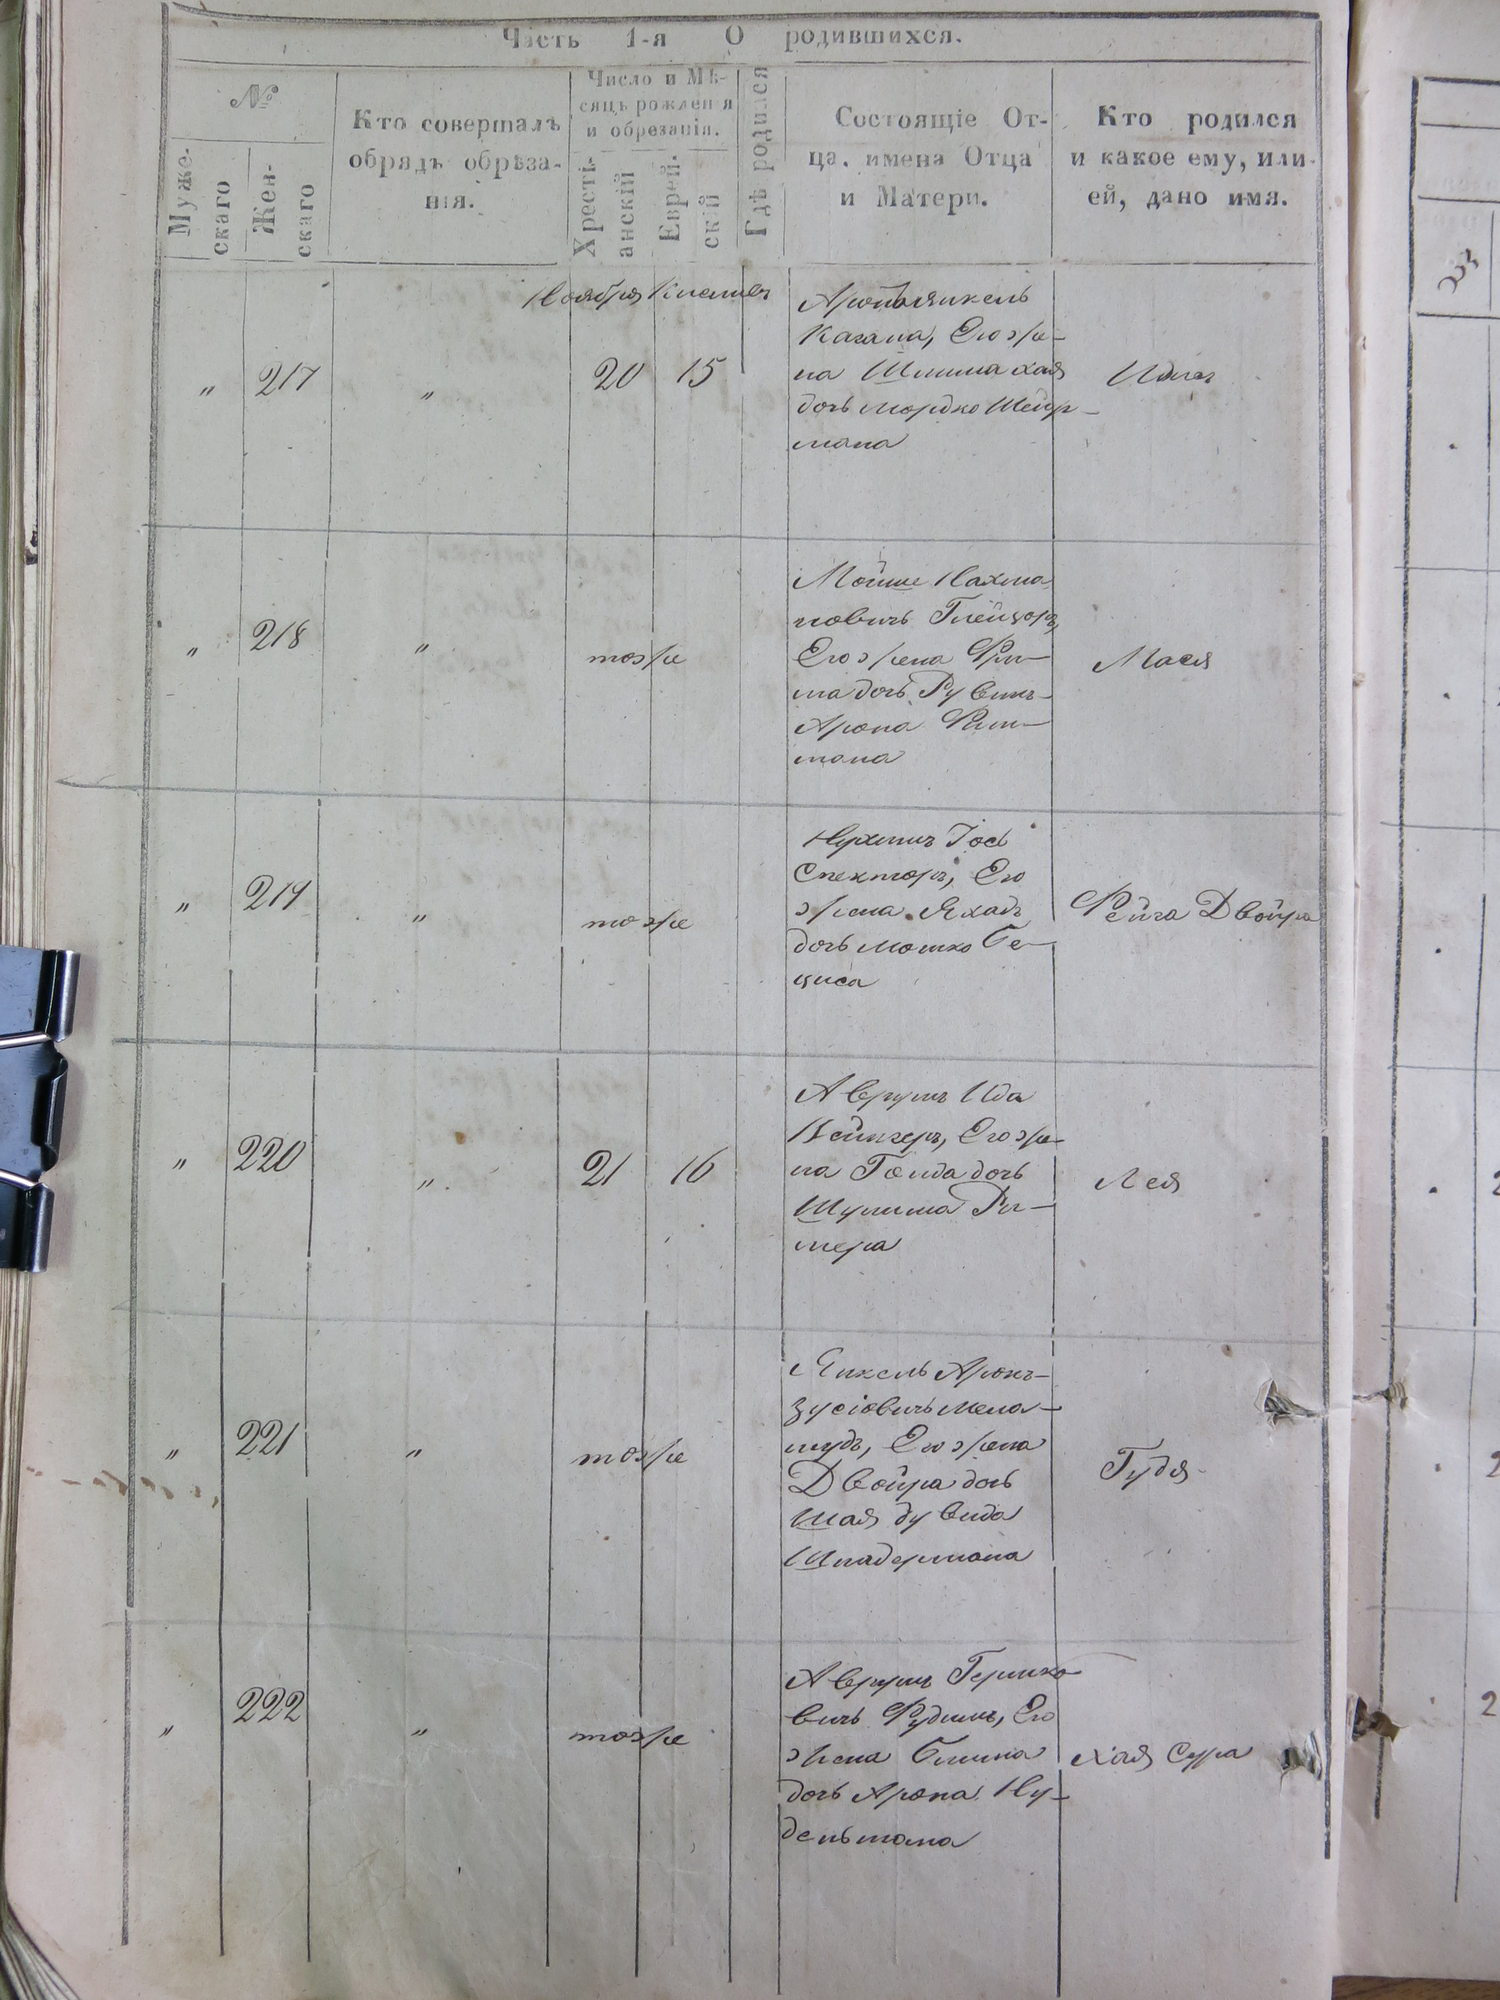 Часть 1-я О родившихся.
№
Муже-
скаго
Жен-
скаго
Кто совершалъ
обрядъ обрѣза-
нія.
Число и Мѣ-
сяцъ рожденія
и обрезанія.
Христі-
анскій
Еврей-
скій
Гдѣ родился
Состоящіе От-
ца, имена Отца
и Матери.
Кто родился
и какое ему, или
ей, дано имя.
Ноября Кисливъ
„ 217 „ 20 15
Кагана, Его же-
на Шлима Хая
дочь Мордко Шейр-
мана
„ 218 „ тоже
Мойше Нахма
новичъ
Его жена Фри-
ма дочь Рувинъ-
Арона
мана
Мася
„ 219 „ тоже
Нухимъ Іось
Спекторъ, Его
жена
дочь Мошко Бе-
циса
Фейга Двойра
„ 220 „ 21 16
Аврумъ Ида
Вейнгеръ, Его же-
на Голда дочь
Шулима Ри-
тера
Лея
„ 221 „ тоже
Янкель Аронъ-
Зусіовичъ Мела-
мудъ, Его жена
Двойра дочь
Шая Дувида
Шнадермана
Гудя
„ 222 „ тоже
Аврумъ Гершко
вичъ Фудимъ, Его
жена Блима
дочь Арона Ну-
дельмана
Хая Сура